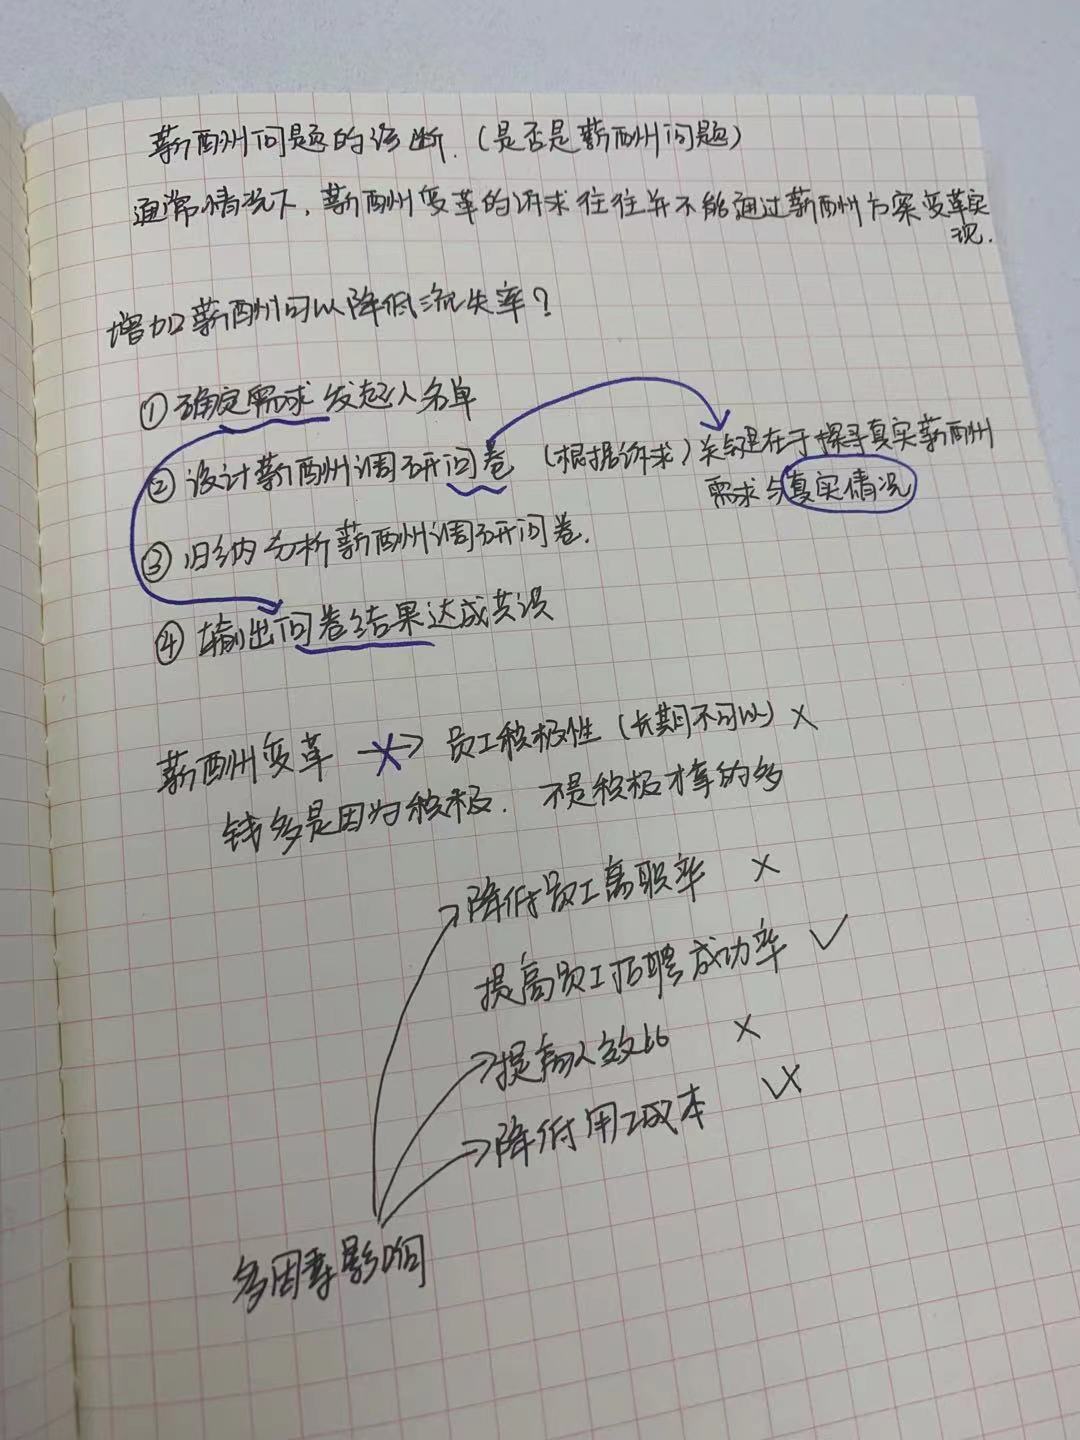 薪酬问题的诊断.（是否是薪酬问题）
通常情况下，薪酬变革的诉求往往并不能通过薪酬方案变革实
现.
增加薪酬可以降低流失率？
① 确定需求发起人名单
② 设计薪酬调研问卷（根据诉求）关键在于探寻真实薪酬
需求与真实情况
③ 归纳分析薪酬调研问卷.
④ 输出问卷结果达成共识
薪酬变革 → 员工积极性（长期不可以）×
钱多是因为积极. 不是积极才拿的多
→降低员工离职率 ×
提高员工招聘成功率 ✓
→提高人效比 ×
→降低用工成本 ✓×
多因素影响